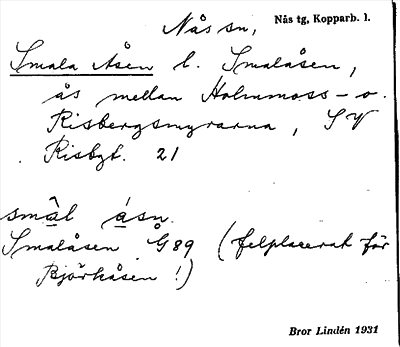 Nås sn, Nås tg, Kopparb. l.
Smala Åsen l. Smalåsen,
ås mellan Holmmoss- o.
Risbergsmyrarna, SV
Risbgt. 21
smâl ásn.
Smalåsen Å G89 (felplacerat för
Björkåsen!)
Bror Lindén 1931